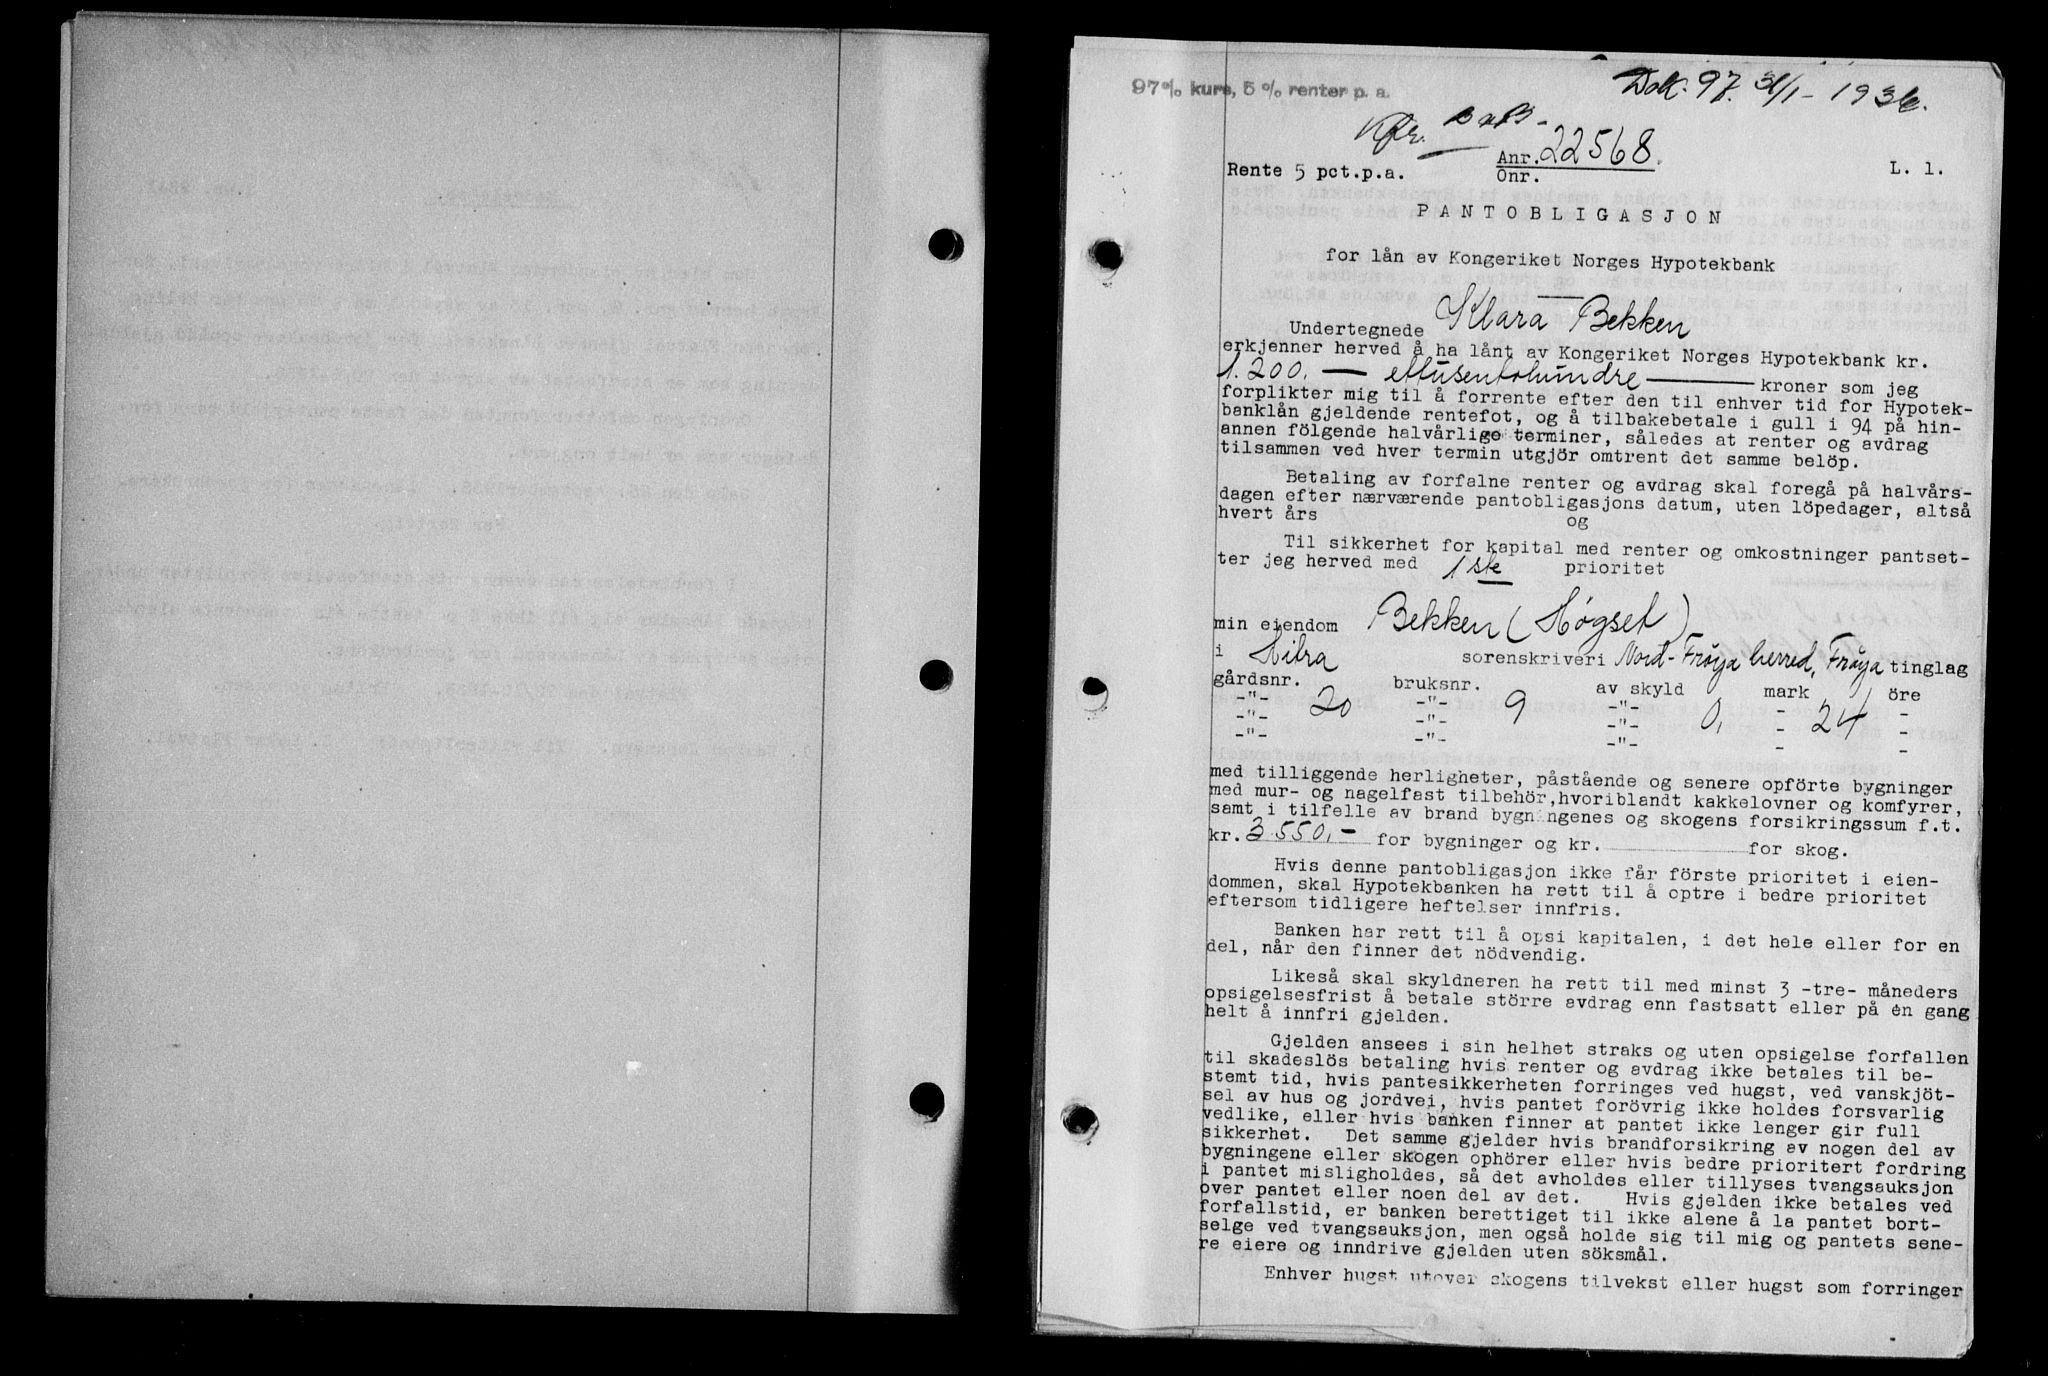 97% kurs, 5 % renter p. a.
Dok. 97. 31/1 - 1936.
Anr. 22568.
Rente 5 pct.p.a.
Onr.
L. 1.
PANTOBLIGASJON
for lån av Kongeriket Norges Hypotekbank
Undertegnede Klara Bekken
erkjenner herved å ha lånt av Kongeriket Norges Hypotekbank kr.
1.200,- — ettusentohundre — kroner som jeg
forplikter mig til å forrente efter den til enhver tid for Hypotek-
banklån gjeldende rentefot, og å tilbakebetale i gull i 94 på hin-
annen fölgende halvårlige terminer, således at renter og avdrag
tilsammen ved hver termin utgjör omtrent det samme belöp.
Betaling av forfalne renter og avdrag skal foregå på halvårs-
dagen efter nærværende pantobligasjons datum, uten löpedager, altså
hvert års og
Til sikkerhet for kapital med renter og omkostninger pantset-
ter jeg herved med 1ste prioritet
min eiendom Bekken (Høgset)
i Hitra sorenskriveri Nord-Frøya herred, Frøya tinglag
gårdsnr. bruksnr. av skyld mark öre
-"- 20 -"- 9 -"- 0, - 24 -
-"- -"- -"- - -
-"- -"- -"- - -
med tilliggende herligheter, påstående og senere opförte bygninger
med mur- og nagelfast tilbehör, hvoriblandt kakkelovner og komfyrer,
samt i tilfelle av brand bygningenes og skogens forsikringssum f.t.
kr. 3.550,- for bygninger og kr. for skog.
Hvis denne pantobligasjon ikke får förste prioritet i eien-
dommen, skal Hypotekbanken ha rett til å optre i bedre prioritet
eftersom tidligere heftelser innfris.
Banken har rett til å opsi kapitalen, i det hele eller for en
del, når den finner det nödvendig.
Likeså skal skyldneren ha rett til med minst 3 -tre- måneders
opsigelsesfrist å betale större avdrag enn fastsatt eller på én gang
helt å innfri gjelden.
Gjelden ansees i sin helhet straks og uten opsigelse forfallen
til skadeslös betaling hvis renter og avdrag ikke betales til be-
stemt tid, hvis pantesikkerheten forringes ved hugst, ved vanskjöt-
sel av hus og jordvei, hvis pantet forövrig ikke holdes forsvarlig
vedlike, eller hvis banken finner at pantet ikke lenger gir full
sikkerhet. Det samme gjelder hvis brandforsikring av nogen del av
bygningene eller skogen ophörer eller hvis bedre prioritert fordring
i pantet misligholdes, så det avholdes eller tillyses tvangsauksjon
over pantet eller noen del av det. Hvis gjelden ikke betales ved
forfallstid, er banken berettiget til ikke alene å la pantet bort-
selge ved tvangsauksjon, men også holde sig til mig og pantets sene-
re eiere og inndrive gjelden uten söksmål.
Enhver hugst utover skogens tilvekst eller hugst som forringer